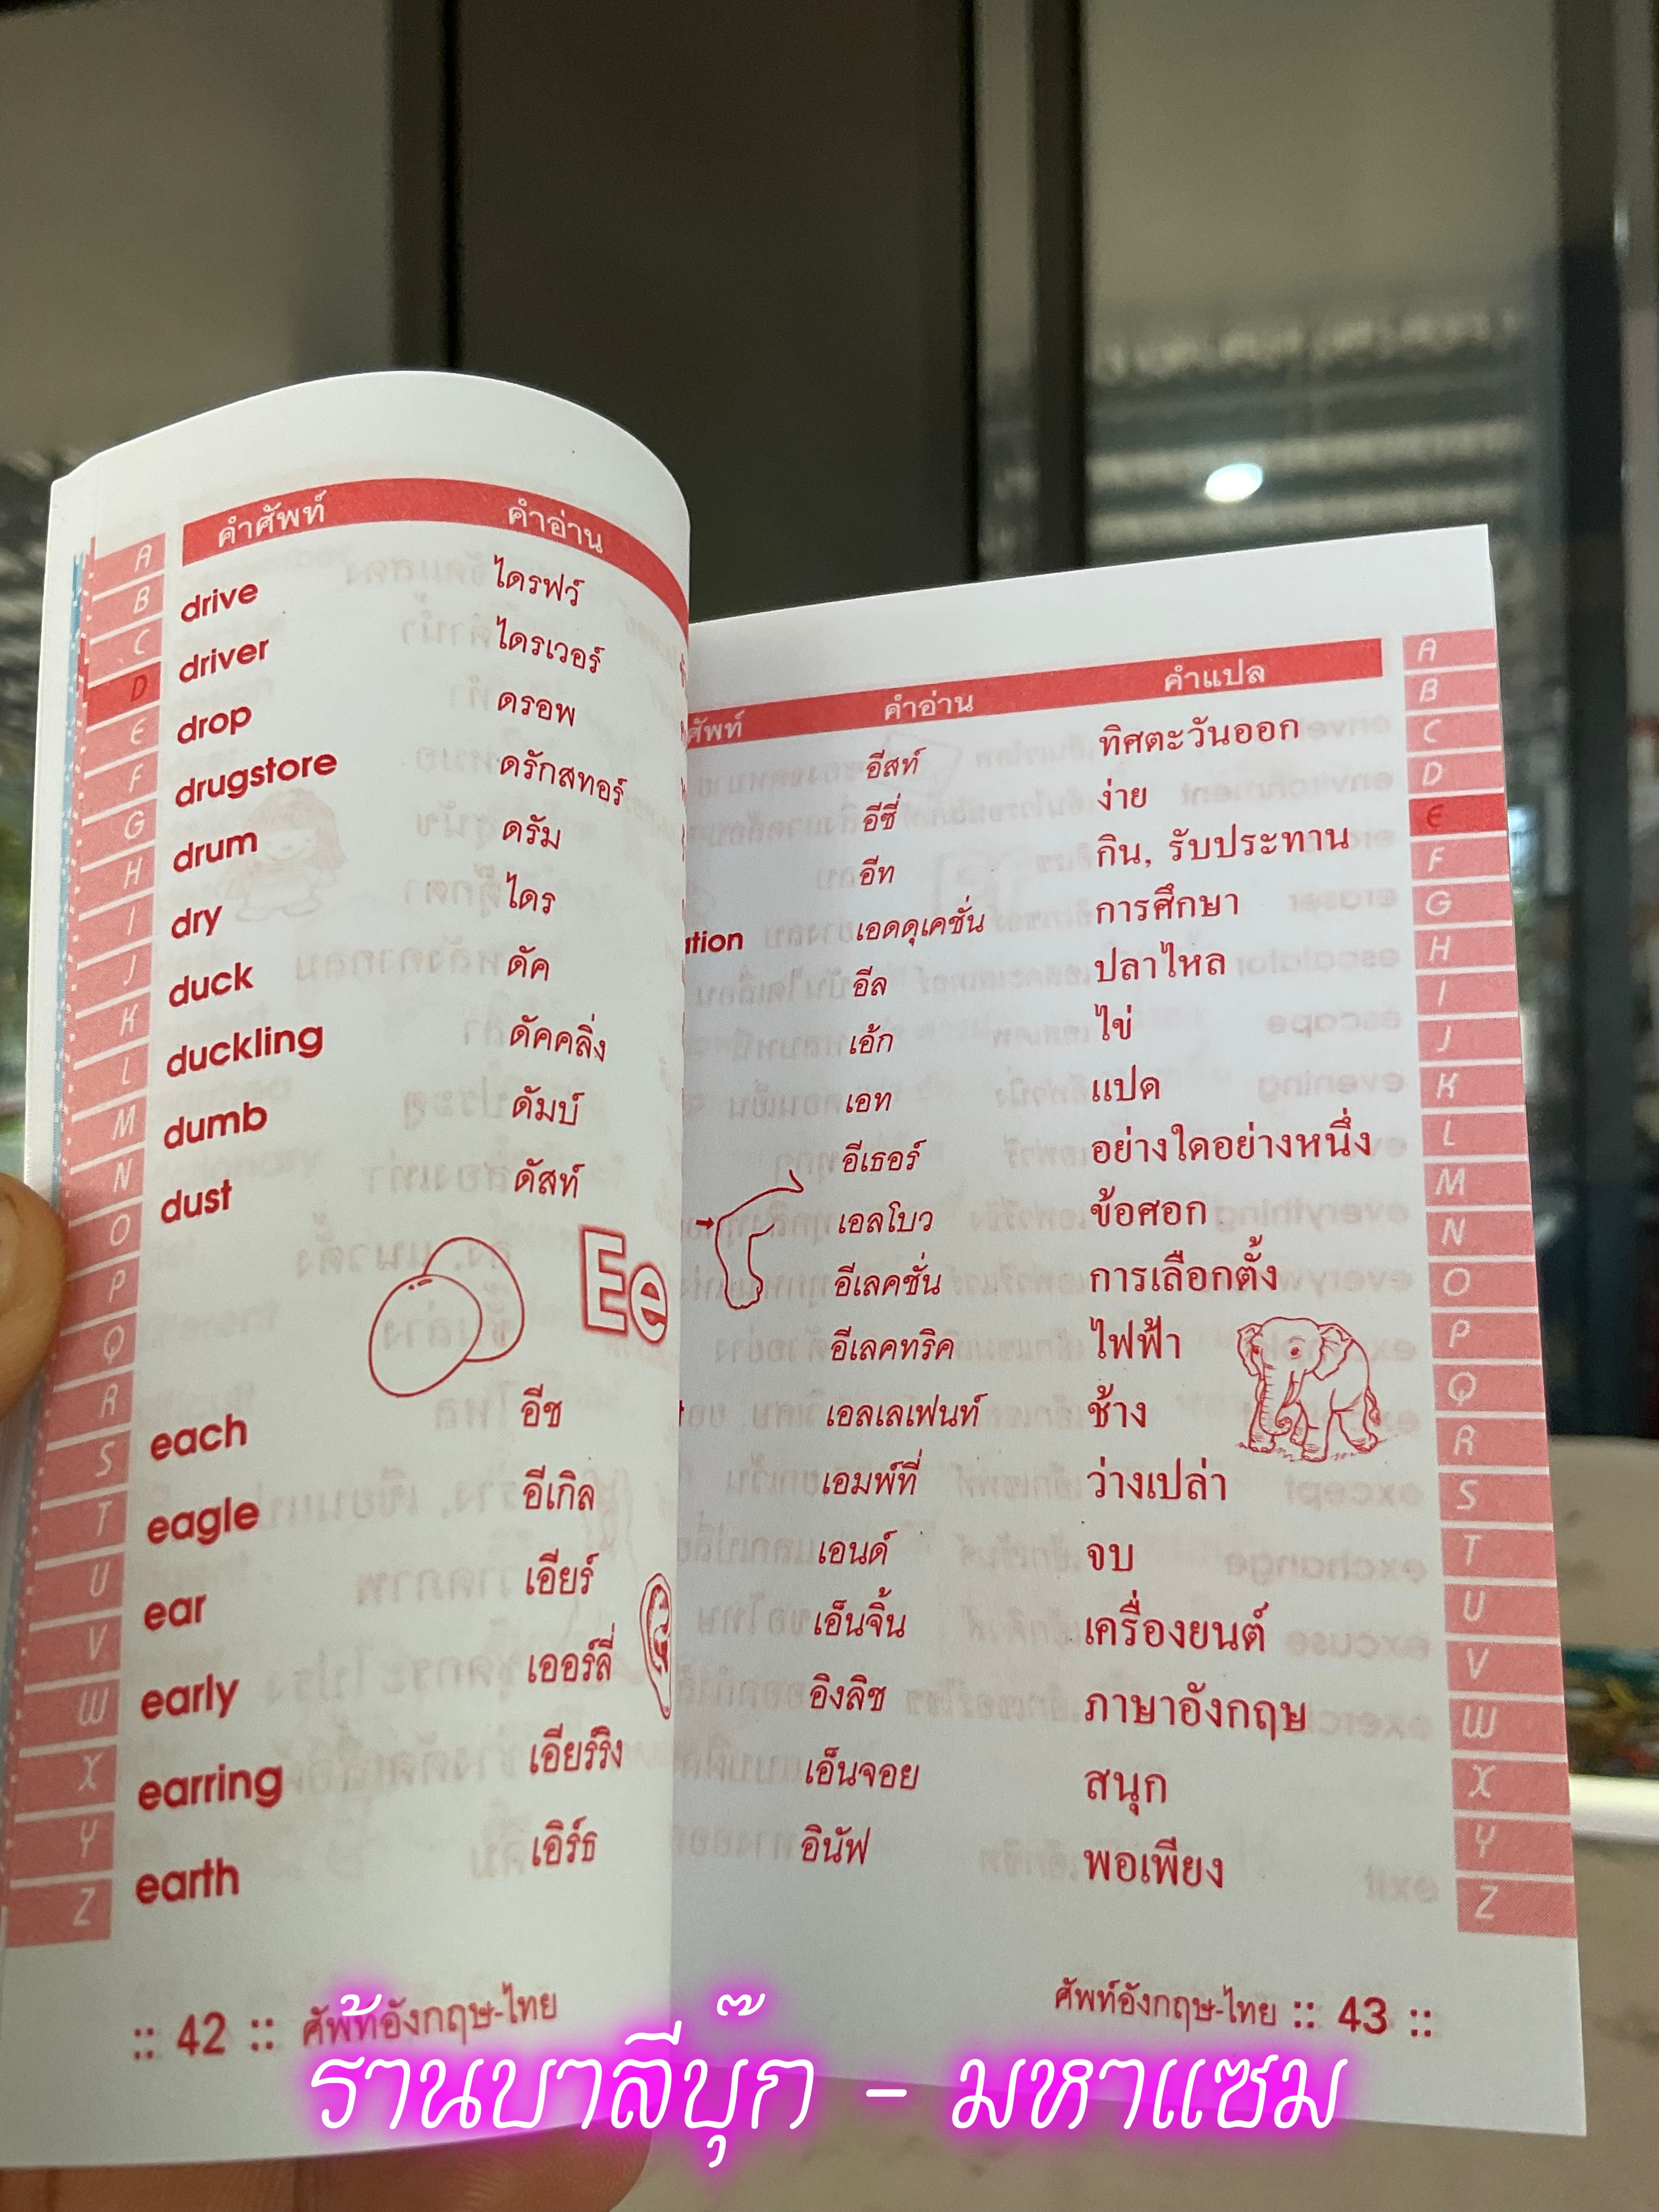 คำศัพท์ คำอ่าน
drive ไดรฟว์
driver ไดรเวอร์
drop ดรอพ
drugstore ดรักสทอร์
drum ดรัม
dry ไดร
duck ดัค
duckling ดัคคลิ่ง
dumb ดัมบ์
dust ดัสท์
Ee
each อีช
eagle อีเกิล
ear เอียร์
early เออร์ลี่
earring เอียร์ริง
earth เอิร์ธ
:: 42 :: ศัพท์อังกฤษ-ไทย
A
B
C
D
E
F
G
H
I
J
K
L
M
N
O
P
Q
R
S
T
U
V
W
X
Y
Z
ศัพท์ คำอ่าน คำแปล
อีสท์ ทิศตะวันออก
อีซี่ ง่าย
อีท กิน, รับประทาน
ation เอดดุเคชั่น การศึกษา
อีล ปลาไหล
เอ้ก ไข่
เอท แปด
อีเธอร์ อย่างใดอย่างหนึ่ง
เอลโบว ข้อศอก
อีเลคชั่น การเลือกตั้ง
อีเลคทริค ไฟฟ้า
เอลเลเฟนท์ ช้าง
เอมพ์ที่ ว่างเปล่า
เอนด์ จบ
เอ็นจิ้น เครื่องยนต์
อิงลิช ภาษาอังกฤษ
เอ็นจอย สนุก
อินัฟ พอเพียง
ศัพท์อังกฤษ-ไทย :: 43 ::
A
B
C
D
E
F
G
H
I
J
K
L
M
N
O
P
Q
R
S
T
U
V
W
X
Y
Z
ร้านบาลีบุ๊ก - มหาแซม